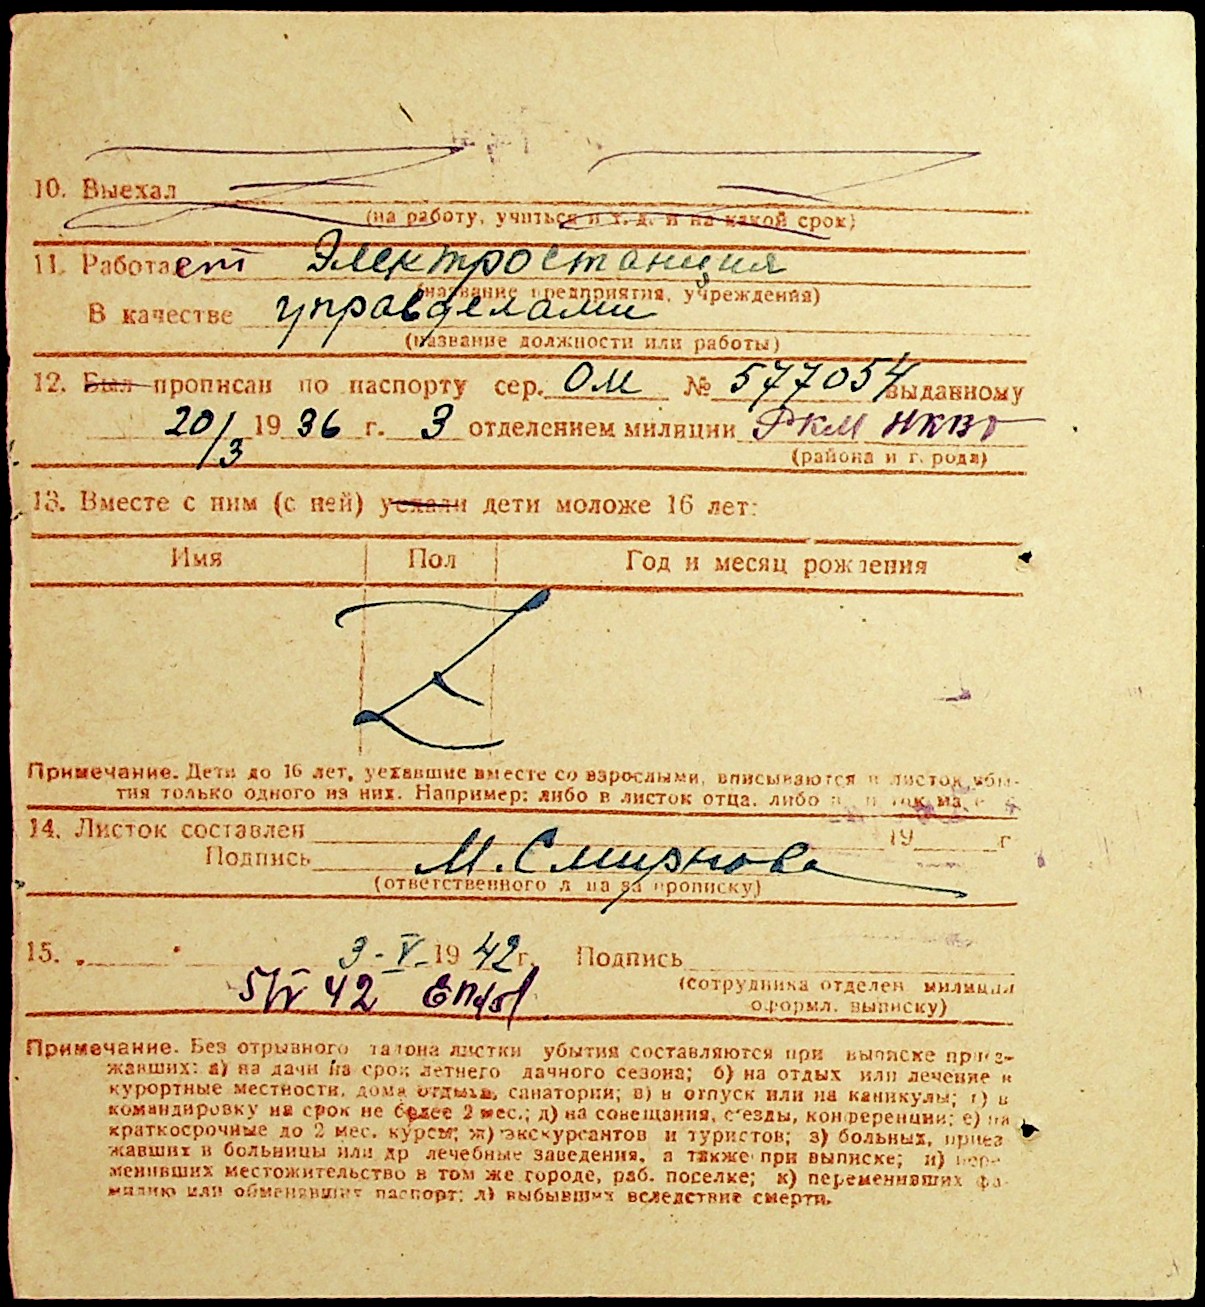 10. Выехал
(на работу, учиться и т. д. и на какой срок)
11. Работает Электростанция
(название предприятия, учреждения)
В качестве управделами
(название должности или работы)
12. Был прописан по паспорту сер. ОМ № 577054 выданному
20/3 1936 г. 3 отделением милиции РКМ НКВД
(района и города)
13. Вместе с ним (с ней) уехали дети моложе 16 лет:
Имя Пол Год и месяц рождения
Примечание. Дети до 16 лет, уехавшие вместе со взрослыми, вписываются в листок убы-
тия только одного из них. Например: либо в листок отца, либо
14. Листок составлен 19 г
Подпись М. Смирнова
(ответственного лица за прописку)
15. 3-V-1942 г. Подпись
(сотрудника отделен милиции
5/V 42
оформл. выписку)
Примечание. Без отрывного талона листки убытия составляются при выписке приез-
жавших: а) на дачи на срок летнего дачного сезона; б) на отдых или лечение в
курортные местности, дома отдыха, санатории; в) в отпуск или на каникулы; г) в
командировку на срок не более 2 мес.; д) на совещания, с'езды, конференции; е) на
краткосрочные до 2 мес. курсы; ж) экскурсантов и туристов; з) больных, приез
жавших в больницы или др лечебные заведения, а также при выписке; и) пере-
менивших местожительство в том же городе, раб. поселке; к) переменивших фа-
милию или обменявших паспорт; л) выбывших вследствие смерти.